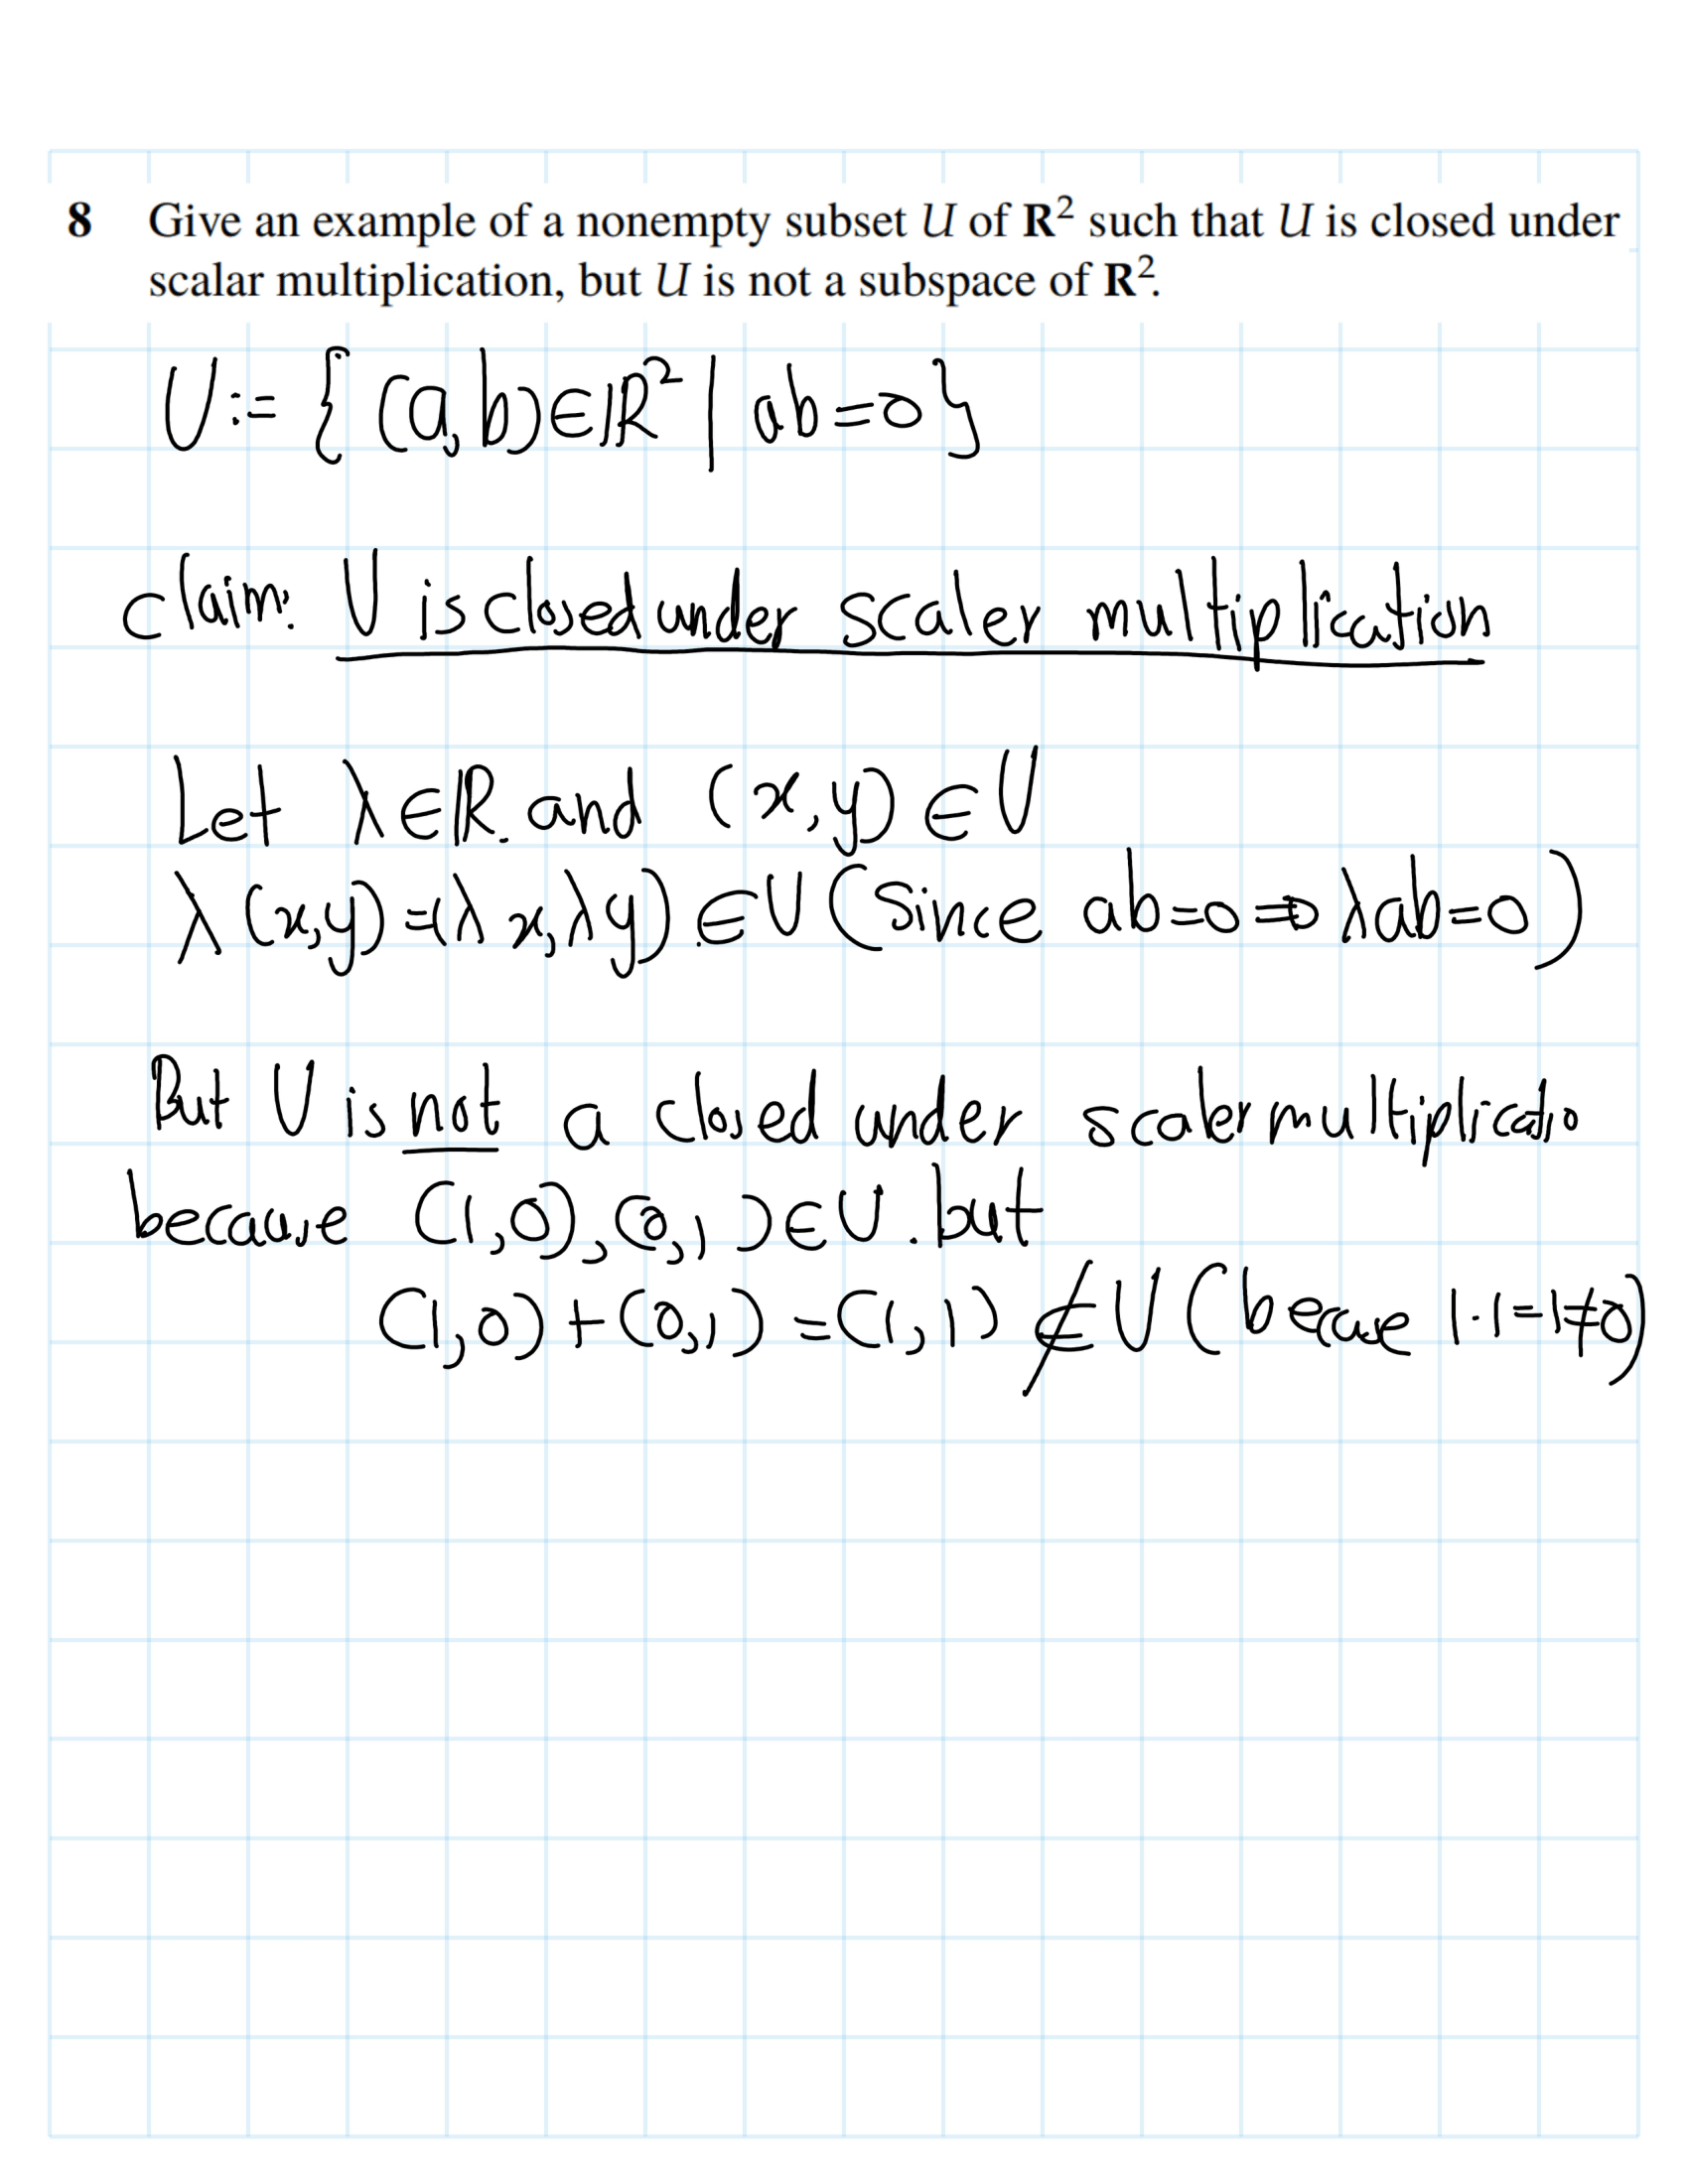 8 Give an example of a nonempty subset U of R² such that U is closed under
scalar multiplication, but U is not a subspace of R².
U := { (a,b)∈ℝ² | ab=0}
claim: U is closed under scaler multiplication
Let λ∈ℝ. and (x,y) ∈ U
λ(x,y)=(λx,λy).∈U (since ab=0⇒λab=0)
But U is not a closed under scaler multiplicatio
because (1,0),(0,1)∈U. but
(1,0)+(0,1)=(1,1) ∉ U (because 1·1=1≠0)